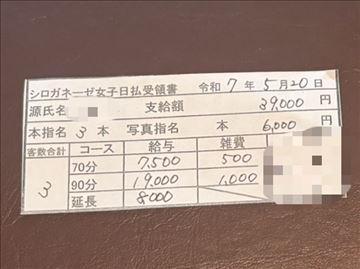 シロガネーゼ女子日払受領書 令和 7 年 5 月 20 日
源氏名 支給額 39,000 円
本指名 3 本 写真指名 本 6,000 円
客数合計 コース 給与 雑費
3 70分 7,500 500
90分 19,000 1,000
延長 8000